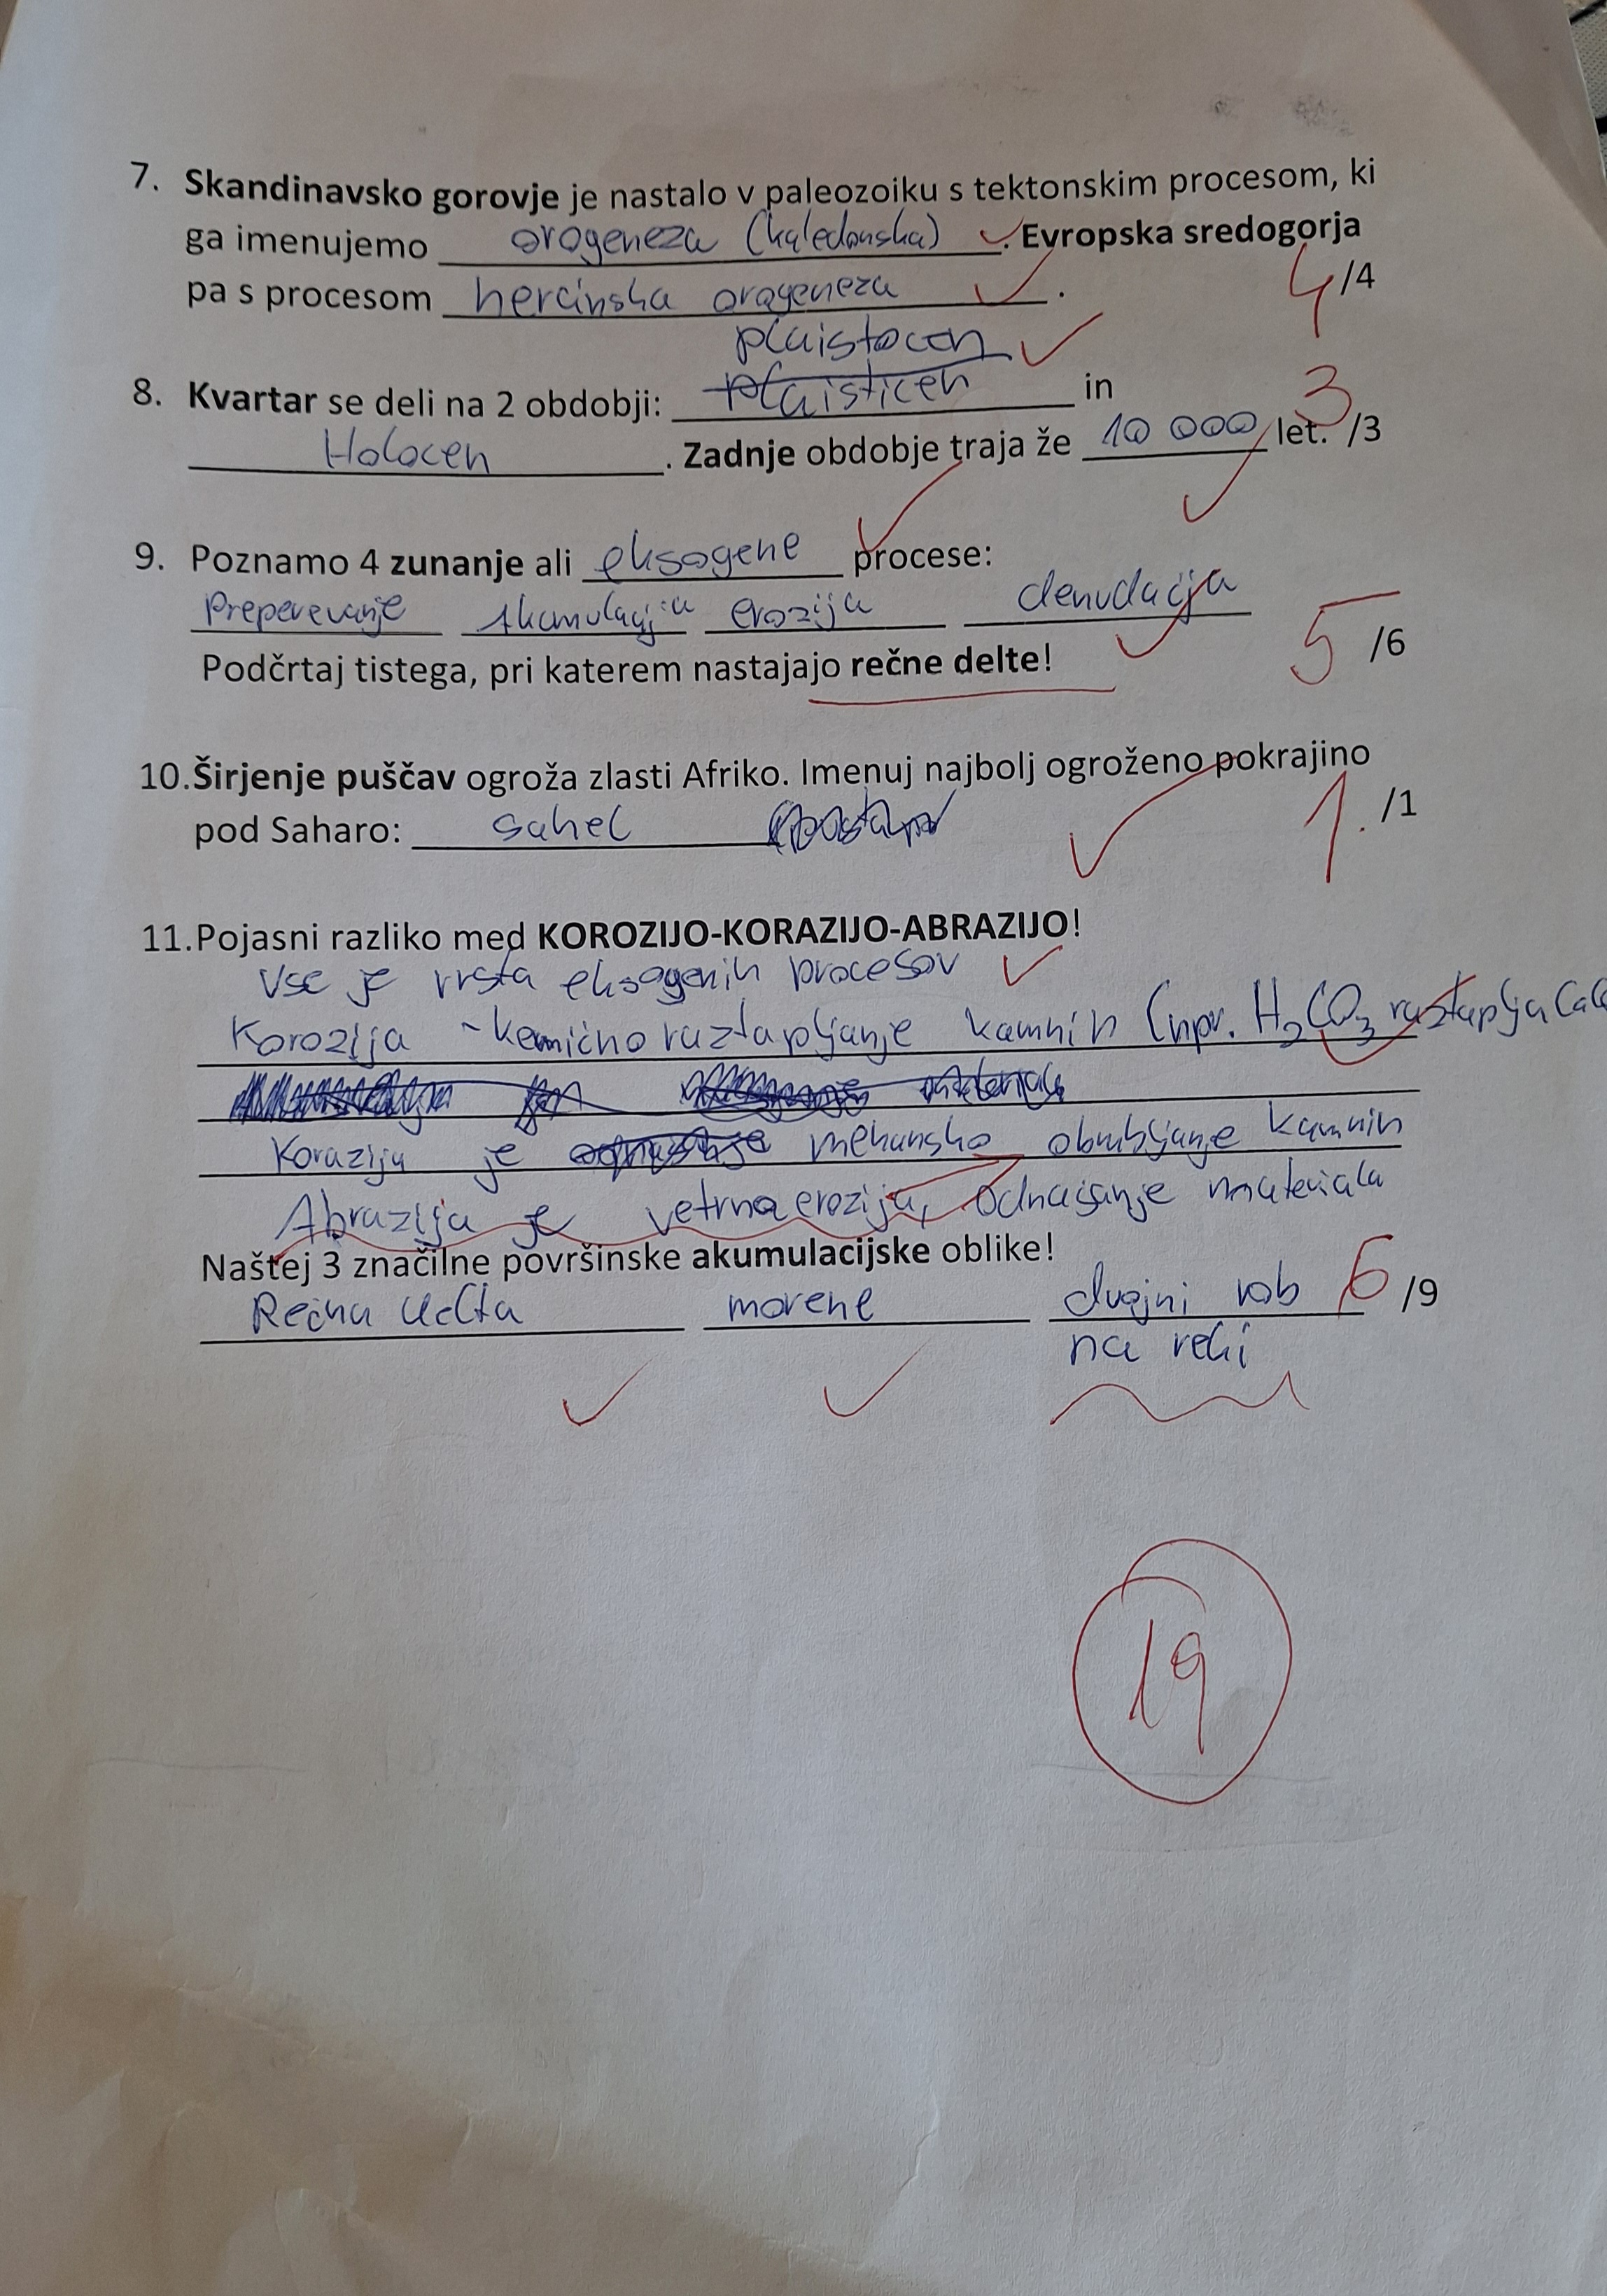 7. Skandinavsko gorovje je nastalo v paleozoiku s tektonskim procesom, ki
ga imenujemo orogeneza (kaledonska). Evropska sredogorja
pa s procesom hercinska orogeneza. 4/4
plaistocen
8. Kvartar se deli na 2 obdobji: plaisticen in 3
Holocen. Zadnje obdobje traja že 10 000 let. /3
9. Poznamo 4 zunanje ali eksogene procese:
Preperevanje Akumulacija erozija denudacija
Podčrtaj tistega, pri katerem nastajajo rečne delte! 5/6
10.Širjenje puščav ogroža zlasti Afriko. Imenuj najbolj ogroženo pokrajino
pod Saharo: sahel 1./1
11.Pojasni razliko med KOROZIJO-KORAZIJO-ABRAZIJO!
Vse je vrsta eksogenih procesov
Korozija - kemično raztapljanje kamnin (npr. H₂CO₃ raztaplja CaC
materiala
Korazija je mehansko obrubljanje kamnin
Abrazija je vetrna erozija, odnašanje materiala
Naštej 3 značilne površinske akumulacijske oblike!
Rečna delta morene dvojni rob 6/9
na reki
19